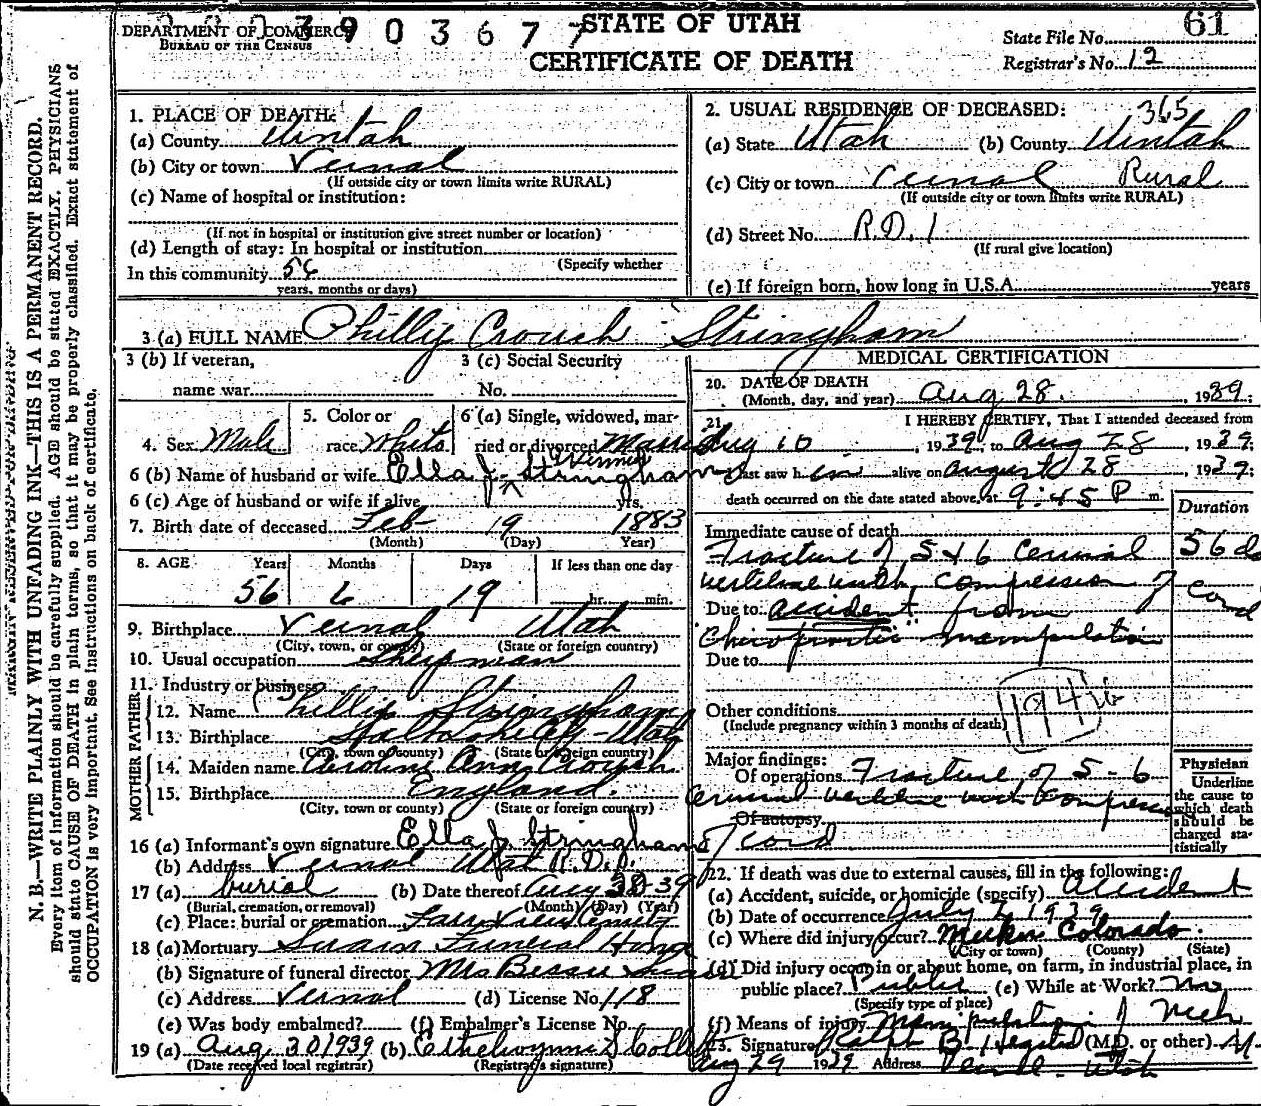 DEPARTMENT OF COMMERCE
BUREAU OF THE CENSUS
9 0 3 6 7 7
STATE OF UTAH
CERTIFICATE OF DEATH
61
State File No.
Registrar's No. 12
N. B.—WRITE PLAINLY WITH UNFADING INK—THIS IS A PERMANENT RECORD.
Every item of information should be carefully supplied. AGE should be stated EXACTLY. PHYSICIANS
should state CAUSE OF DEATH in plain terms, so that it may be properly classified. Exact statement of
OCCUPATION is very important. See instructions on back of certificate.
1. PLACE OF DEATH:
(a) County Uintah
(b) City or town Vernal
(If outside city or town limits write RURAL)
(c) Name of hospital or institution:
(If not in hospital or institution give street number or location)
(d) Length of stay: In hospital or institution
(Specify whether
In this community 56
years, months or days)
2. USUAL RESIDENCE OF DECEASED:
365
(a) State Utah (b) County Uintah
(c) City or town Vernal Rural
(If outside city or town limits write RURAL)
(d) Street No. R.D. 1
(If rural give location)
(e) If foreign born, how long in U.S.A. years
3 (a) FULL NAME Philly Crouch Stringham
3 (b) If veteran,
name war
3 (c) Social Security
No.
4. Sex Male
5. Color or
race White
6 (a) Single, widowed, mar-
ried or divorced Married
6 (b) Name of husband or wife Ella J. Stringham
6 (c) Age of husband or wife if alive yrs.
7. Birth date of deceased Feb- 19 1883
(Month) (Day) Year)
8. AGE Years Months Days If less than one day
56 6 19 hr. min.
9. Birthplace Vernal Utah
(City, town, or county) (State or foreign country)
10. Usual occupation Sheepman
11. Industry or business
FATHER
12. Name Phillip Stringham
13. Birthplace Salt Lake City - Utah
(City, town or county) (State or foreign country)
MOTHER
14. Maiden name Caroline Ann Crouch
15. Birthplace England.
(City, town or county) (State or foreign country)
16 (a) Informant's own signature Ella J. Stringham
(b) Address Vernal Utah R.D.1.
17 (a) burial (b) Date thereof Aug 30-39
(Burial, cremation, or removal) (Month) (Day) (Year)
(c) Place: burial or cremation
18 (a) Mortuary Swain Funeral Home
(b) Signature of funeral director Mrs Bessie Swain
(c) Address Vernal (d) License No. 118
(e) Was body embalmed? (f) Embalmer's License No.
19 (a) Aug 30 1939 (b)
(Date received local registrar) (Registrar's signature)
MEDICAL CERTIFICATION
20. DATE OF DEATH
(Month, day, and year) Aug 28. , 1939;
21. I HEREBY CERTIFY, That I attended deceased from
Aug 10 , 1939, to Aug 28 , 1939;
last saw h im alive on August 28 , 1939;
death occurred on the date stated above, at 9:45 P m.
Duration
Immediate cause of death
Fracture of 5 & 6 Cervical 56 da
vertebrae with compression of cord
Due to: accident from
"Chiropractic" manipulation
Due to
Other conditions
(Include pregnancy within 3 months of death)
194 b
Major findings:
Of operations Fracture of 5-6
Cervical vertebrae with compression
Of autopsy
of cord
Physician
Underline
the cause to
which death
should be
charged sta-
tistically
22. If death was due to external causes, fill in the following:
(a) Accident, suicide, or homicide (specify) Accident
(b) Date of occurrence July 2 1939
(c) Where did injury occur? Meeker Colorado.
(City or town) (County) (State)
(d) Did injury occur in or about home, on farm, in industrial place, in
public place? Public (e) While at Work? No
(Specify type of place)
(f) Means of injury Manipulation of Neck
23. Signature Ralph B. (M.D. or other) M.
Aug 29 1939 Address Vernal - Utah